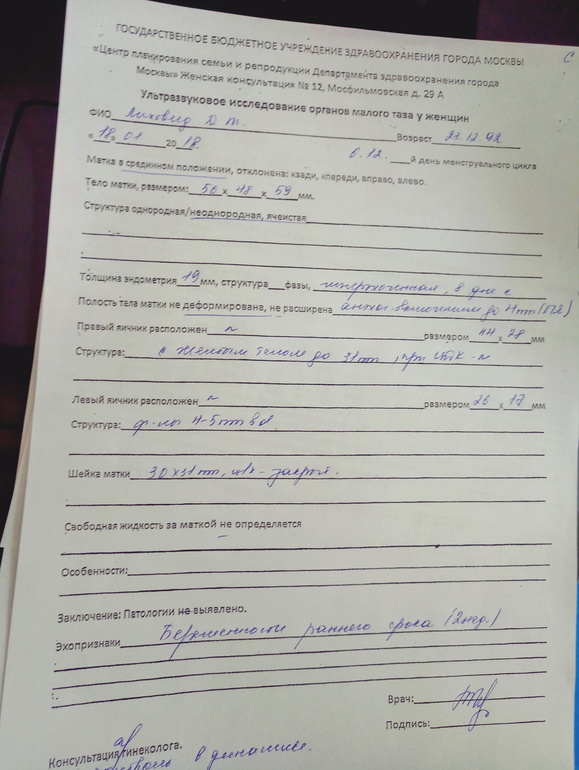 ГОСУДАРСТВЕННОЕ БЮДЖЕТНОЕ УЧРЕЖДЕНИЕ ЗДРАВООХРАНЕНИЯ ГОРОДА МОСКВЫ
«Центр планирования семьи и репродукции Департамента здравоохранения города
Москвы» Женская консультация № 12, Мосфильмовская д. 29 А
Ультразвуковое исследование органов малого таза у женщин
ФИО Д М. Возраст 23.12.92
«18» 01 2018. 6.12. й день менструального цикла
Матка в срединном положении, отклонена: кзади, кпереди, вправо, влево.
Тело матки, размером: 56 х 48 х 59 мм.
Структура однородная/неоднородная, ячеистая
Толщина эндометрия 19 мм, структура фазы, в дне с
Полость тела матки не деформирована, не расширена анэхог. включением до 4mm (ПЯ)
Правый яичник расположен N размером 44 х 28 мм
Структура: с желтым телом до 31mm, при ЦДК - N
Левый яичник расположен N размером 26 х 17 мм
Структура: ф-лы 4-5mm в d
Шейка матки 30х31mm, ц/к - закрыт.
Свободная жидкость за маткой не определяется
Особенности:
Заключение: Патологии не выявлено.
Эхопризнаки Беременности раннего срока (2нед.)
Врач:
Подпись:
Консультация гинеколога.
в динамике.